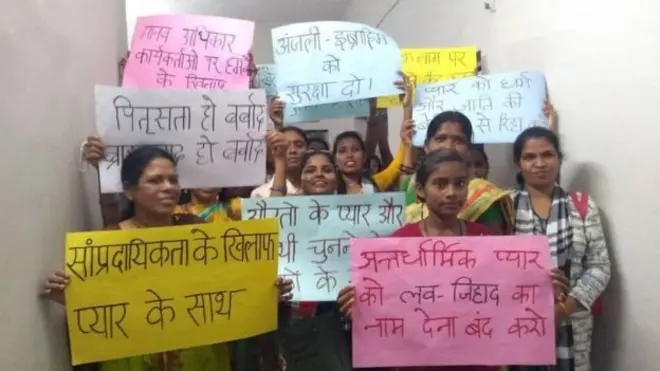 मानव अधिकार
कार्यकर्ताओं पर हमले
के खिलाफ
अंजली-इब्राहिम
को
सुरक्षा दो।
नाम पर
प्यार को धर्म
और जाति की
से रिहा
पितृसत्ता हो बर्बाद
हो बर्बाद
औरतो के प्यार और
चुनने
के
सांप्रदायिकता के खिलाफ
प्यार के साथ
अन्तर्धार्मिक प्यार
को लव-जिहाद का
नाम देना बंद करो